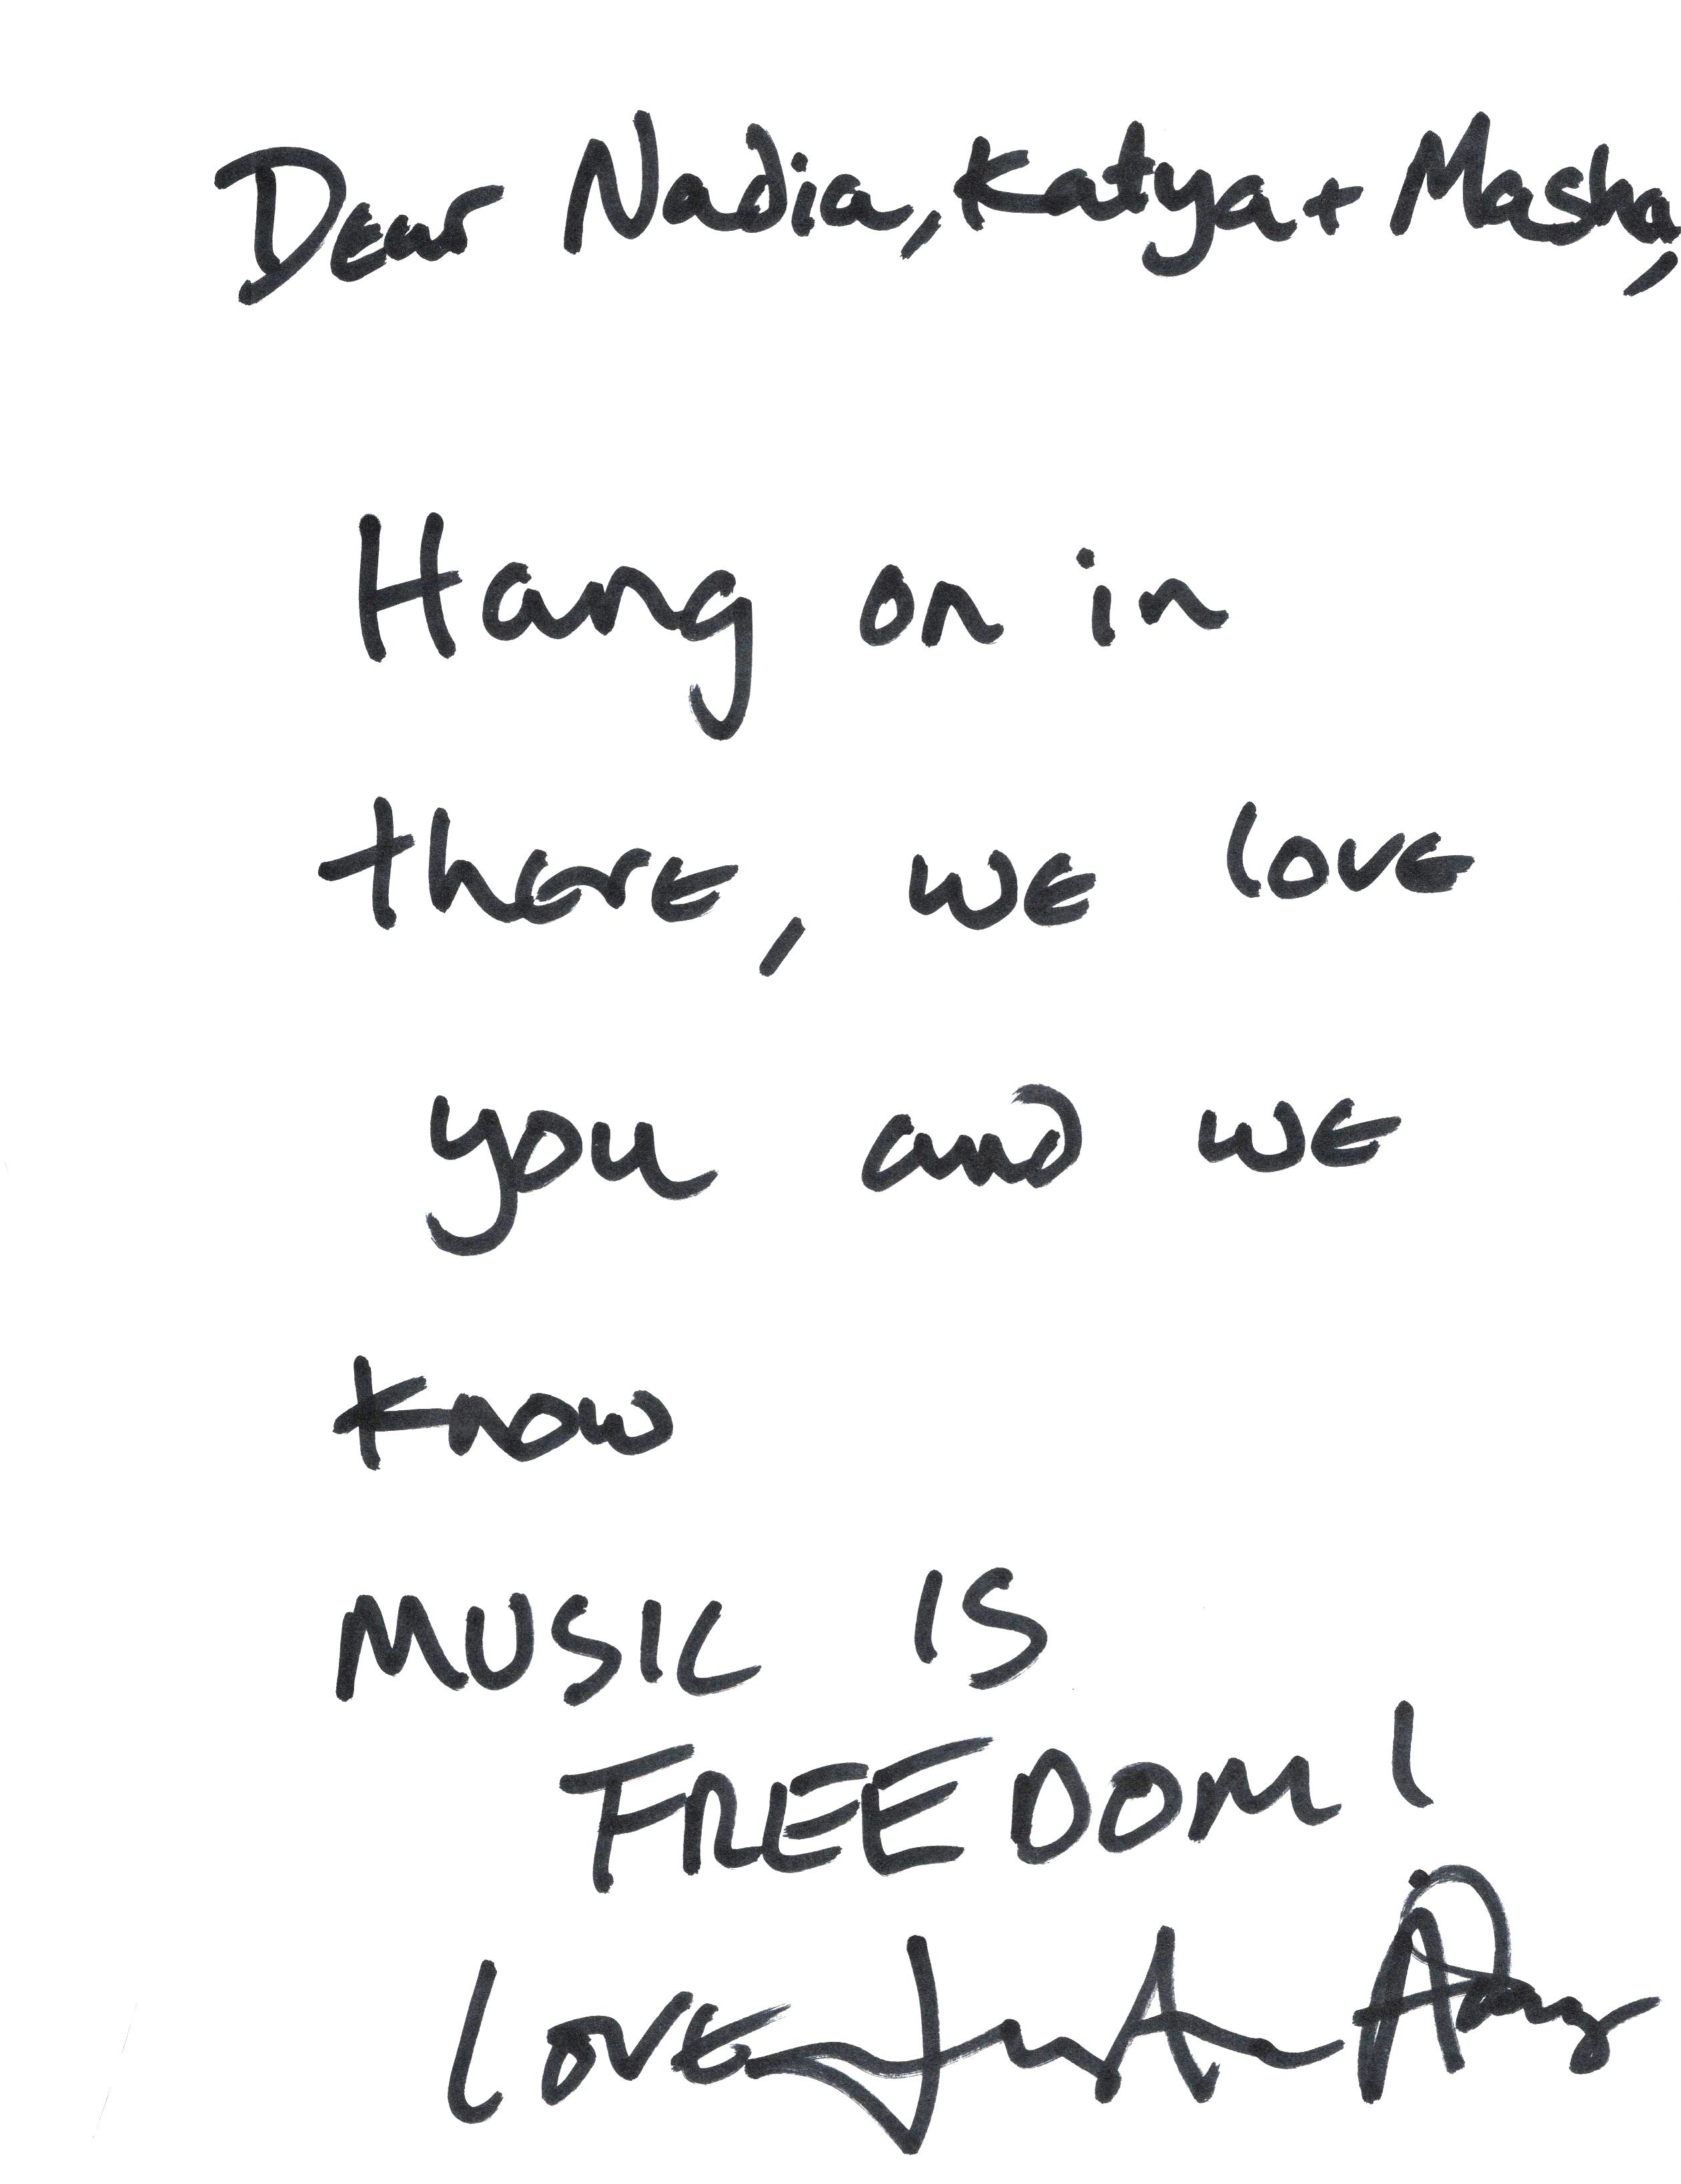 Dear Nadia, Katya + Masha,
Hang on in
there, we love
you and we
know
MUSIC IS
FREEDOM!
Love Justin Adams